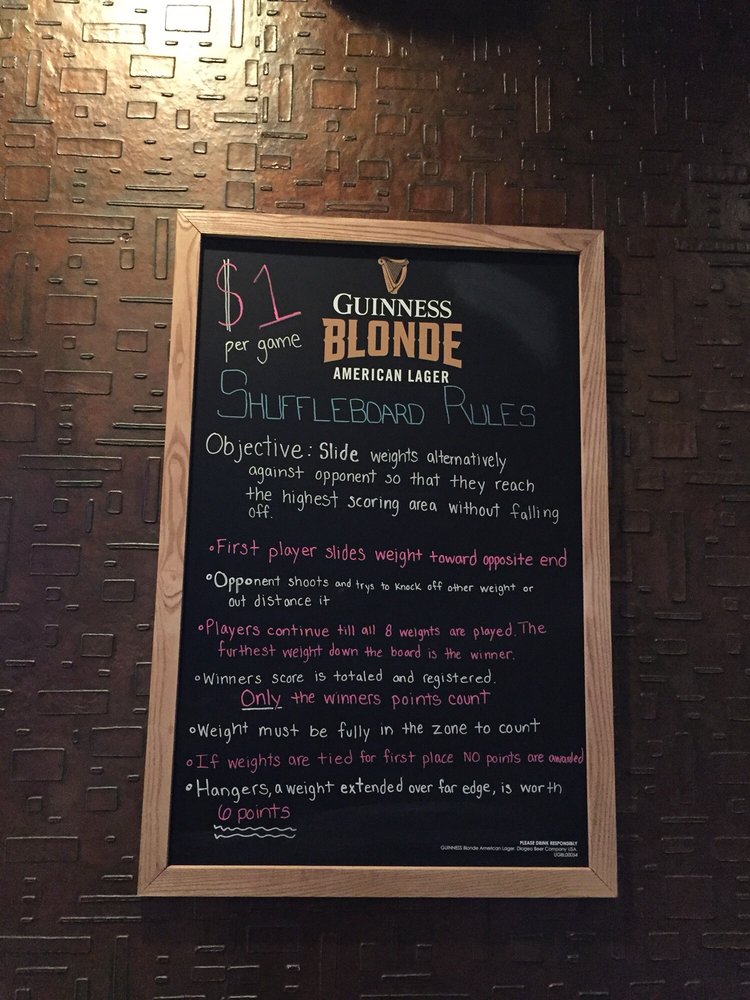 $1
per game
GUINNESS
BLONDE
AMERICAN LAGER
SHUFFLEBOARD RULES
Objective: Slide weights alternatively
against opponent so that they reach
the highest scoring area without falling
off.
• First player slides weight toward opposite end
• Opponent shoots and trys to knock off other weight or
out distance it
• Players continue till all 8 weights are played. The
furthest weight down the board is the winner.
• Winners score is totaled and registered.
Only the winners points count
• Weight must be fully in the zone to count
• If weights are tied for first place NO points are awarded
• Hangers, a weight extended over far edge, is worth
6 points
PLEASE DRINK RESPONSIBLY
GUINNESS Blonde American Lager. Diageo Beer Company USA.
UGBL00054